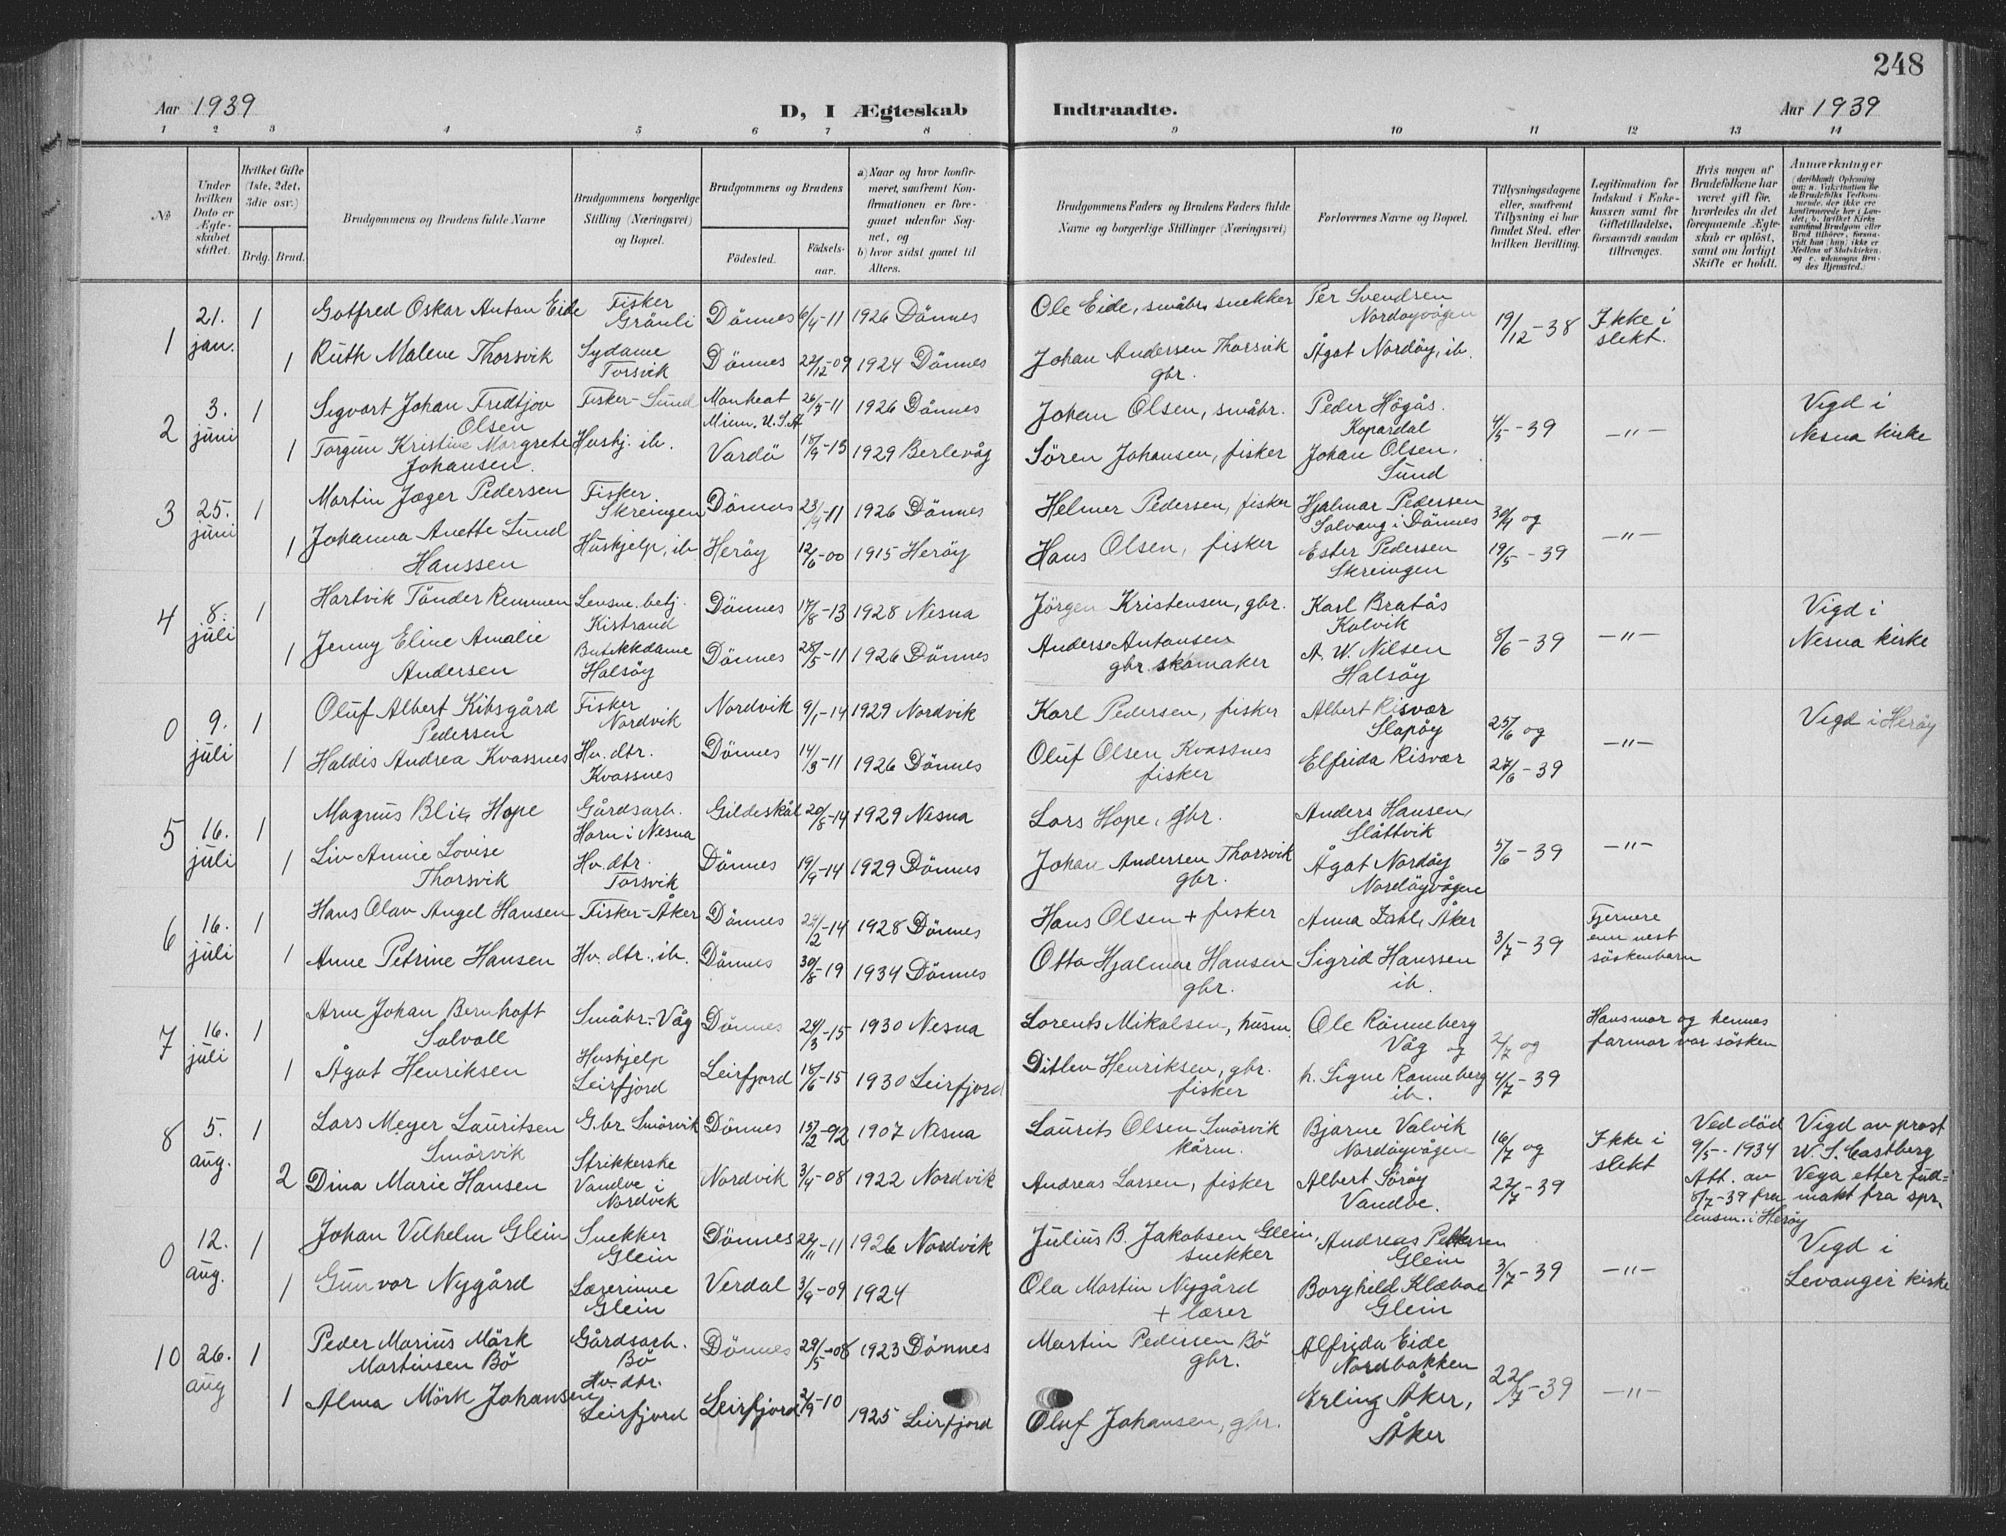 248
Aar 1939
D, I Ægteskab
Indtraadte.
Aar 1939
1 2 3 4 5 6 7 8 9 10 11 12 13 14
№
Under hvilken Dato er Ægteskabet stiftet.
Hvilket Gifte (1ste, 2det, 3die osv.)
Brdg. Brud.
Brudgommens og Brudens fulde Navne
Brudgommens borgerlige Stilling (Næringsvei) og Bopæl.
Brudgommens og Brudens
Fødested.
Fødselsaar.
a) Naar og hvor konfirmeret, saafremt Konfirmationen er foregaaet udenfor Sognet, og
b) hvor sidst gaaet til Alters.
Brudgommens Faders og Brudens Faders fulde Navne og borgerlige Stillinger (Næringsvei)
Forlovernes Navne og Bopæl.
Tillysningsdagene eller, saafremt Tillysning ei har fundet Sted, efter hvilken Bevilling.
Legitimation for Indskud i Enkekassen samt for Giftetilladelse, forsaavidt saadan tiltrænges.
Hvis nogen af Brudefolkene har været gift før, hvorledes da det foregaaende Ægteskab er opløst, samt om lovligt Skifte er holdt.
Anmærkninger
1 21. jan. 1 Gotfred Oskar Anton Eide Fisker Grånli Dönnes 6/4-11 1926 Dönnes Ole Eide, småbr. snekker Per Svendsen Nordøyvågen 19/12-38 Ikke i slekt.
1 Ruth Malene Thorsvik Sydame Torsvik Dönnes 22/12-09 1924 Dönnes Johan Andersen Thorsvik gbr. Ågot Nordöy, ib.
2 3. juni 1 Sigvart Johan Fredtjov Olsen Fisker-Sund Manheat Minn. U.S.A 26/7-11 1926 Dönnes Johan Olsen, småbr. Peder Högås. Kopardal 4/5-39 -"- Vigd i Nesna kirke
1 Torgun Kristine Margrete Johansen. Hushj. ib. Vardö 18/9-13 1929 Berlevåg Sören Johansen, fisker Johan Olsen, Sund
3 25. juni 1 Martin Jæger Pedersen Fisker. Skreingen Dönnes 23/9-11 1926 Dönnes Helmer Pedersen, fisker Hjalmar Pedersen Solvang i Dönnes 30/4 og -"-
1 Johanna Anette Sund Hanssen Hushjelp, ib Heröy 12/6-00 1915 Heröy Hans Olsen, fisker Ester Pedersen Skreingen 19/5-39
4 8. juli 1 Hartvik Tönder Remmen Lensm. betj. Kistrand Dönnes 17/8-13 1928 Nesna Jörgen Kristensen, gbr. Karl Bratås Kalvik 8/6-39 -"- Vigd i Nesna kirke
1 Jenny Eline Amalie Andersen Butikkdame Halsöy Dönnes 28/5-11 1926 Dönnes Anders Antonsen gbr. skomaker A. W. Nilsen Halsöy
0 9. juli 1 Oluf Albert Kibsgård Pedersen Fisker Nordvik Nordvik 9/1-14 1929 Nordvik Karl Pedersen, fisker Albert Risvær Slapöy 25/6 og -"- Vigd i Heröy
1 Haldis Andrea Kvassnes Hv. dtr. Kvassnes Dönnes 14/3-11 1926 Dönnes Oluf Olsen Kvassnes fisker Elfrida Risvær 27/6-39
5 16. juli 1 Magnus Blix Hope Gårdsarb. Horn i Nesna Gildeskål 20/8-14 1929 Nesna Lars Hope, gbr. Anders Hansen, Slåttvik 5/6-39 -"-
1 Liv Annie Lovise Thorsvik Hv. dtr. Torsvik Dönnes 19/9-14 1929 Dönnes Johan Andersen Thorsvik gbr. Ågot Nordöy Nordöyvågen
6 16. juli 1 Hans Olav Angel Hansen Fisker-Åker Dönnes 1928 Dönnes Hans Olsen + fisker Anna Åker 3/7-39 Fjernere enn nest söskenbarn
1 Anne Petrine Hansen Hv. dtr., ib. Dönnes 30/8-19 1934 Dönnes Otto Hjalmar Hansen gbr. Sigrid Hanssen ib.
7 16. juli 1 Arne Johan Bernhoft Solvoll Småbr.-Våg Dönnes 24/3-15 1930 Nesna Lorents Mikalsen, husm. Ole Rönneberg Våg og 2/7 og Hans mor og hennes farmor var sösken
1 Ågot Henriksen Hushjelp Leirfjord Leirfjord 18/6-15 1930 Leirfjord Ditlev Henriksen, gbr. fisker h. Signe Ronneberg ib. 4/7-39
8 5. aug. 1 Lars Meyer Lauritsen Smörvik G.br Smörvik Dönnes 15/2-92 1907 Nesna Laurits Olsen Smörvik kårm. Bjarne Valvik Nordöyvågen 16/7 og Ikke i slekt Ved död 9/5-1934 Att. av 8/7-39 fra lensm. i Heröy Vigd av prost W. S. Castberg Vega etter fullmakt fra spr.
2 Dina Marie Hansen Strikkerske Vandve i Nordvik Nordvik 3/4-08 1922 Nordvik Andreas Larsen, fisker Albert Söröy Vandve. 22/7-39
0 12. aug. 1 Johan Vilhelm Glein Snekker Glein Dönnes 22/11-11 1926 Nordvik Julius B. Jakobsen Glein, snekker Andreas Pettersen Glein 3/7-39 -"- Vigd i Levanger kirke
1 Gunvor Nygård Lærerinne Glein Verdal 3/9-09 1924 Ola Martin Nygård + lærer Borghild Klæboe Glein
10 26. aug 1 Peder Marius Mörk Martinsen Bö Gårdsarb. Bö Dönnes 29/5-08 1923 Dönnes Martin Pedersen Bö gbr. Alfrida Eide Nordbakken 22/7-39 -"-
1 Alma Mörk Johansen Hv. dtr. Leirfjord Leirfjord 2/9-10 1925 Leirfjord Oluf Johansen, gbr. Erling Åker, Åker